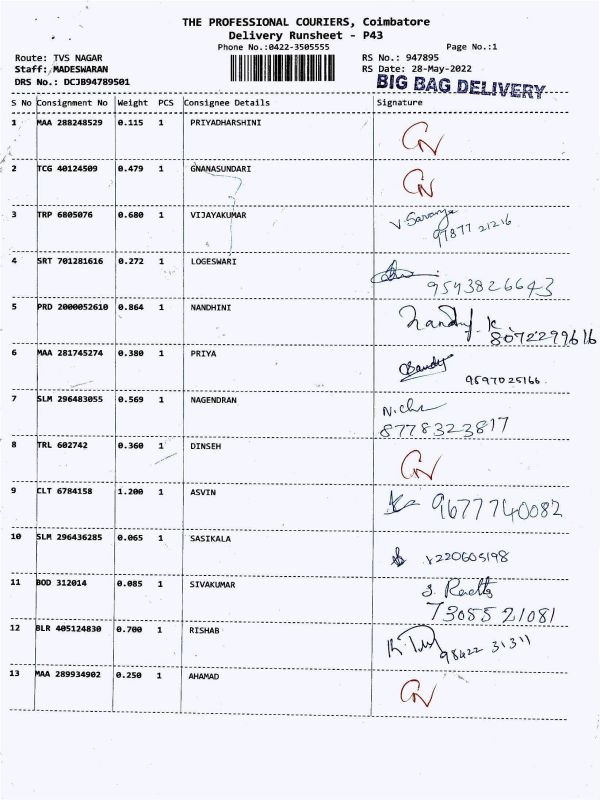 THE PROFESSIONAL COURIERS, Coimbatore
Delivery Runsheet - P43
Phone No.:0422-3505555
Page No.:1
Route: TVS NAGAR
RS No.: 947895
Staff: MADESWARAN
RS Date: 28-May-2022
DRS No.: DCJB94789501
BIG BAG DELIVERY
S No Consignment No Weight PCS Consignee Details Signature
1 MAA 288248529 0.115 1 PRIYADHARSHINI
2 TCG 40124509 0.479 1 GNANASUNDARI
3 TRP 6805076 0.680 1 VIJAYAKUMAR V. Saranya
97877 21216
4 SRT 701281616 0.272 1 LOGESWARI
9543826643
5 PRD 2000052610 0.864 1 NANDHINI
8072299616
6 MAA 281745274 0.380 1 PRIYA
9597025166.
7 SLM 296483055 0.569 1 NAGENDRAN
8778323817
8 TRL 602742 0.360 1 DINSEH
9 CLT 6784158 1.200 1 ASVIN 9677740082
10 SLM 296436285 0.065 1 SASIKALA
11 BOD 312014 0.085 1 SIVAKUMAR
73055 21081
12 BLR 405124830 0.700 1 RISHAB
98422 31311
13 MAA 289934902 0.250 1 AHAMAD